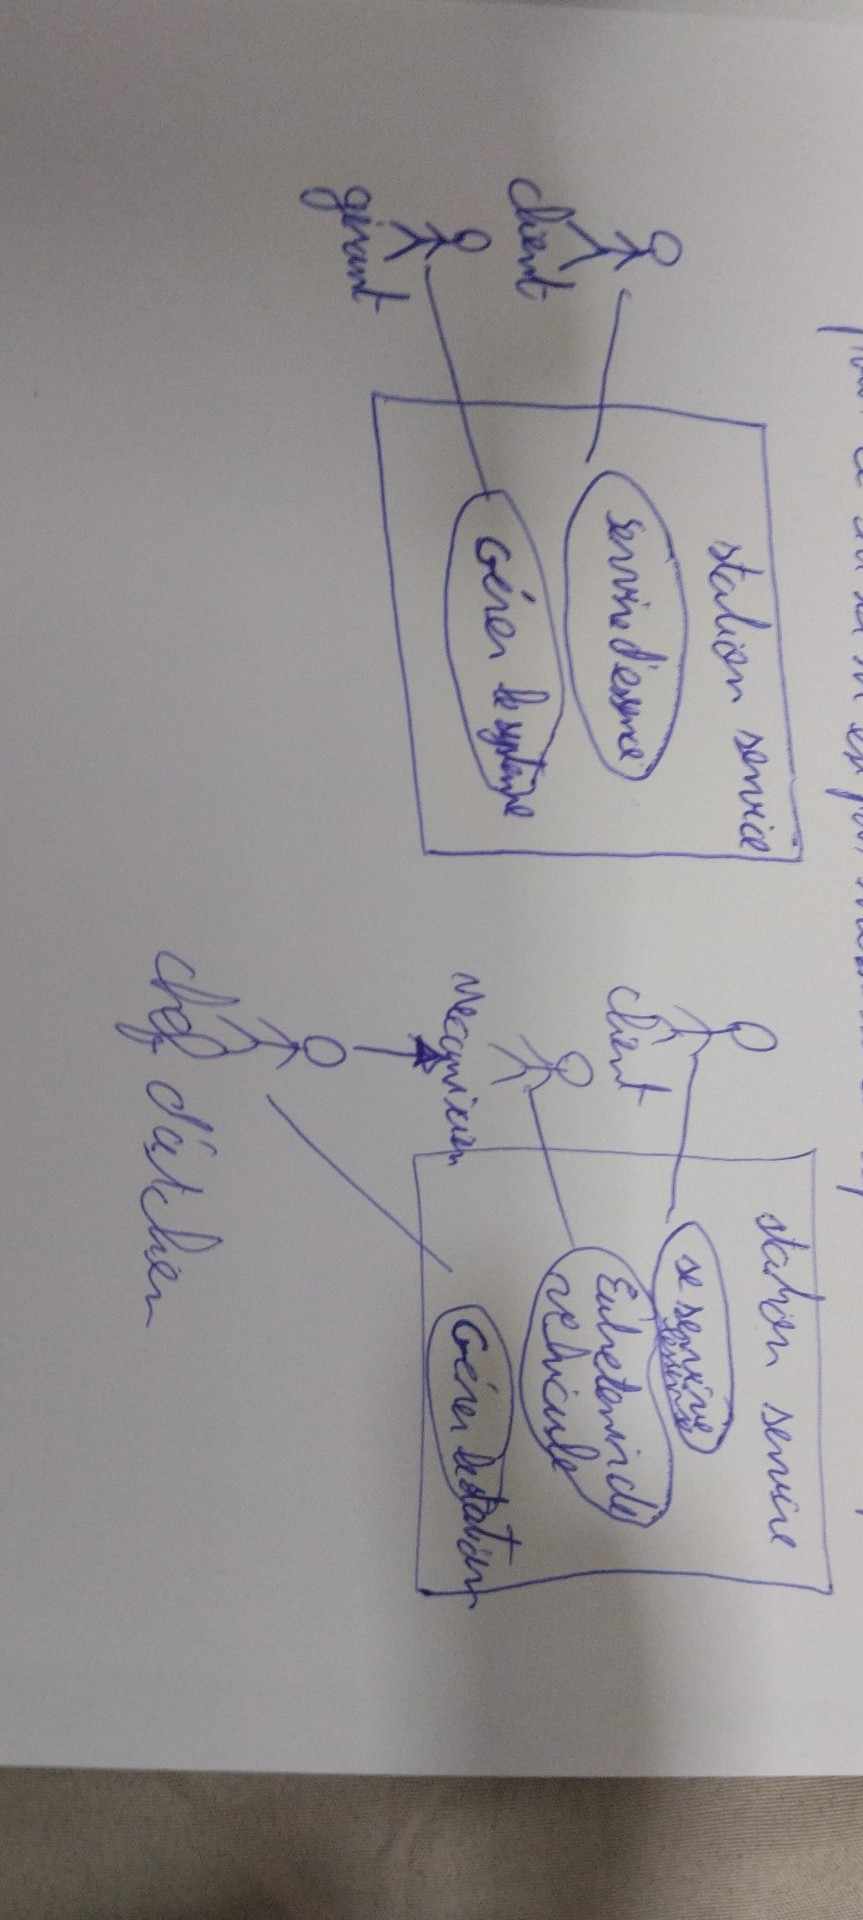 station service
service d'essence
Gérer le système
client
gérant
station service
se servire
d'essence
Entretenir de
vehicule
Gérer la station
client
Mecanicien
chef d'atelier